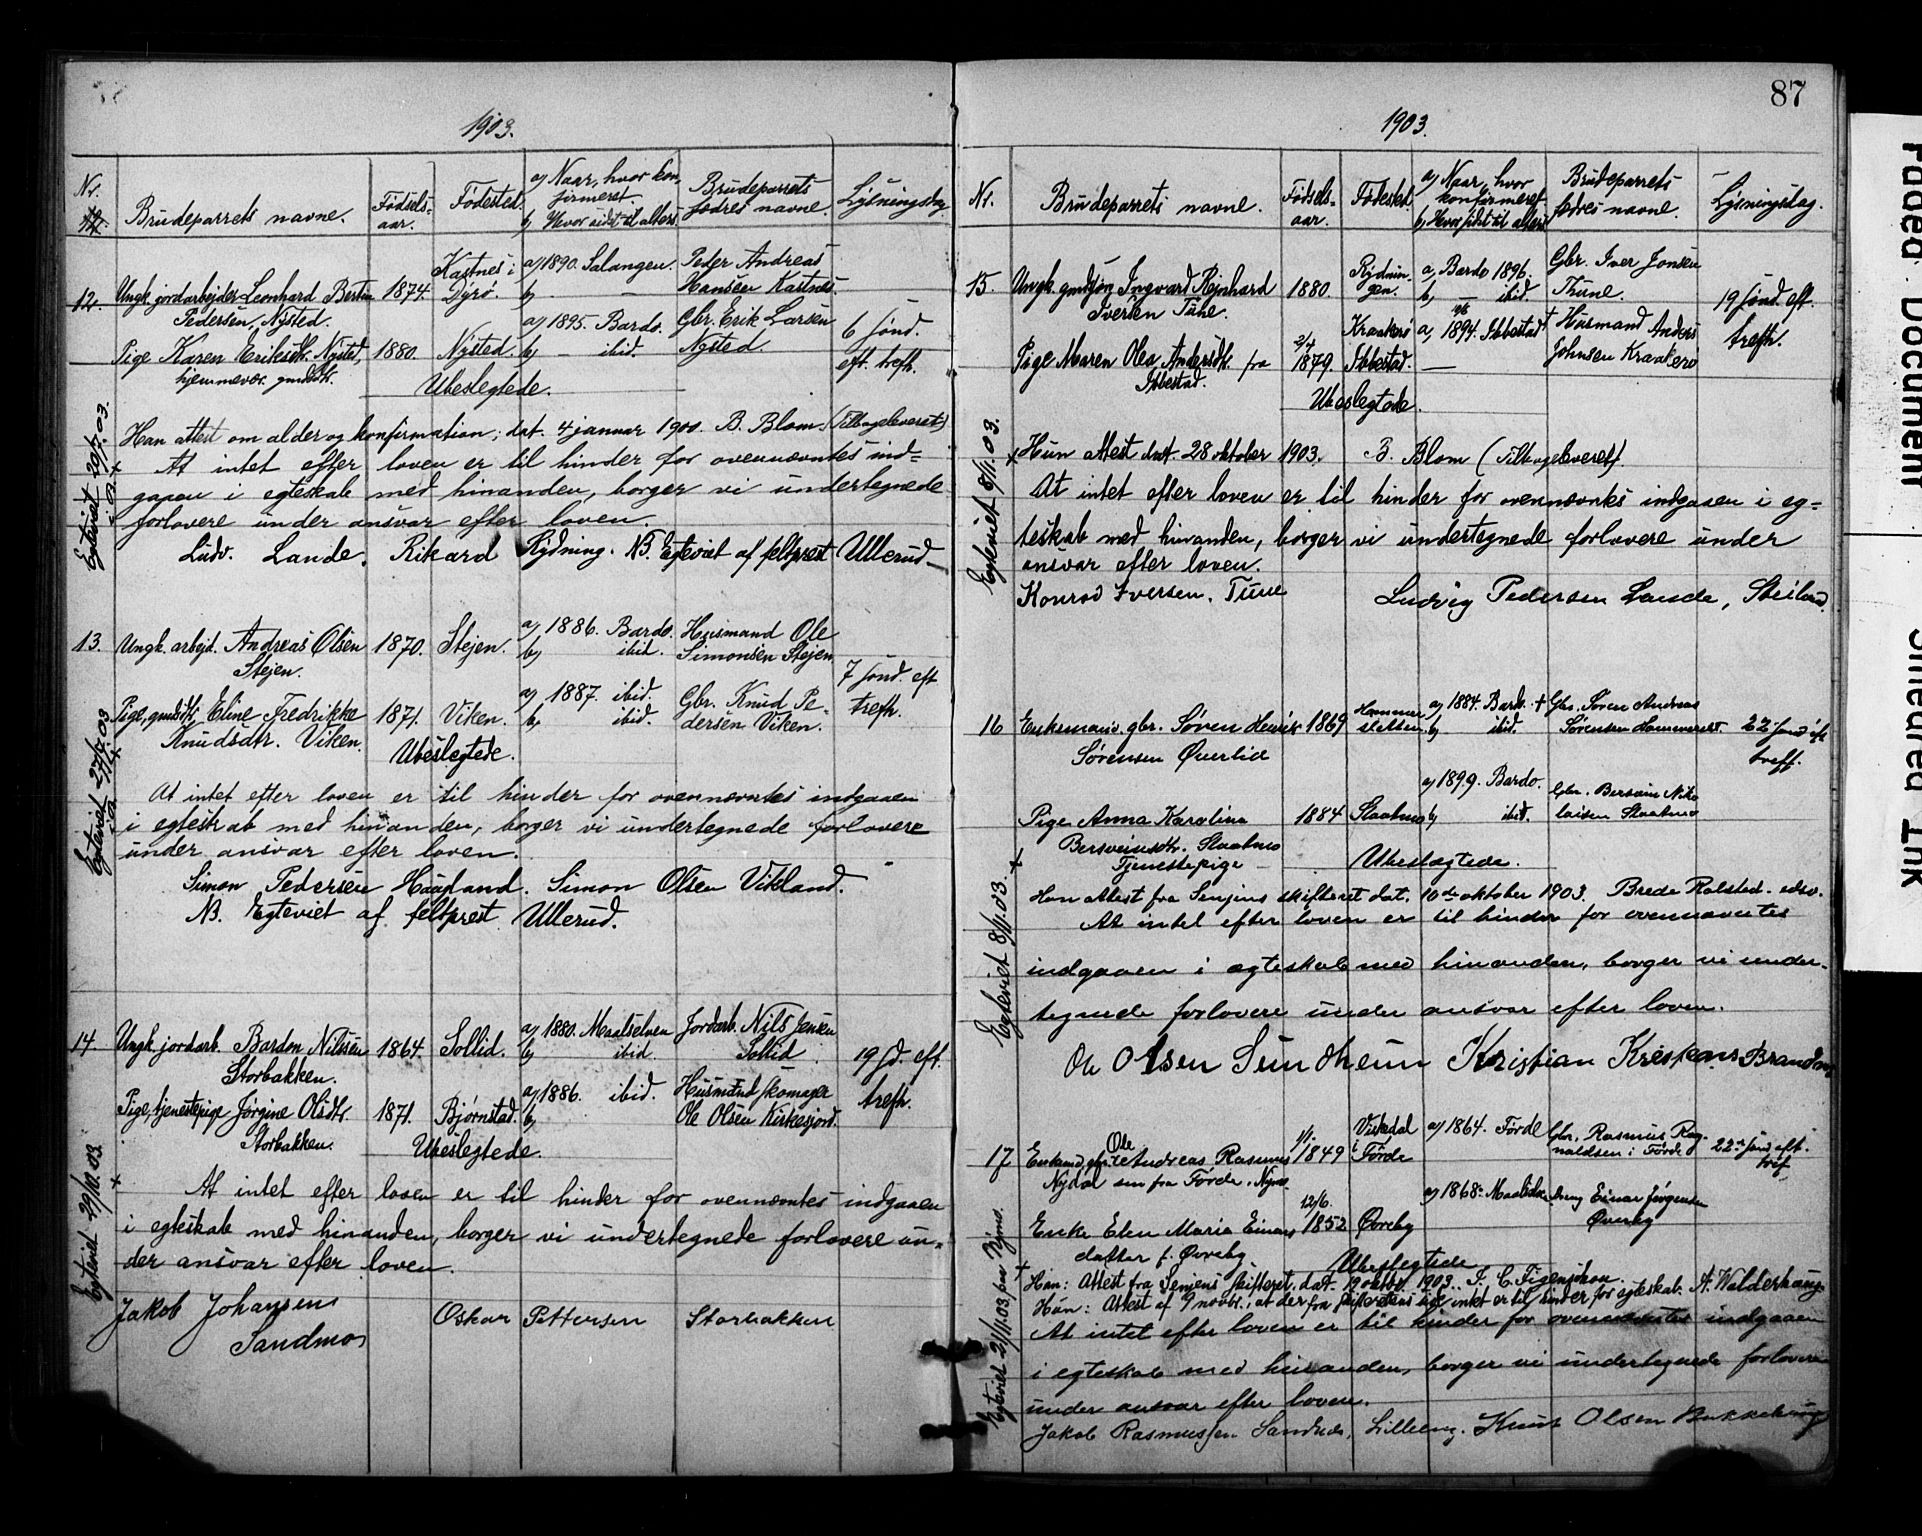 1903.
Nr.
Brudeparrets navne.
Fødsels-
aar.
Fødested.
a) Naar, hvor kon-
firmeret.
b) Hvor sidst til alters.
Brudeparrets
fædres navne.
Lysningsdag
12.
Ungk. jordarbejder Leonhard Bertin
Pedersen, Nysted.
1874.
Kastnes i
Dyrø.
a) 1890. Salangen.
b) —
Peder Andreas
Hansen Kastnes.
Pige Karen Eriksdtr. Nysted,
hjemmevær. gmdsdtr.
1880.
Nysted.
a) 1895. Bardo.
b) ibid.
Gbr. Erik Larsen
Nysted.
6 sønd.
eft. trefh.
Ubeslegtede.
Han attest om alder og konfirmation; dat. 4 januar 1900. B. Blom. (Tilbageleveret)
At intet efter loven er til hinder for ovennævntes ind-
gaaen i egteskab med hinanden, borger vi undertegnede
forlovere under ansvar efter loven.
Ludv. Lande. Rikard Rydning. NB. Egteviet af feltprest Ullerud
Egteviet 20/7.03.
13.
Ungk. arbejd. Andreas Olsen
Stejen.
1870.
Stejen.
a) 1886. Bardo.
b) ibid.
Husmand Ole
Simonsen Stejen
Pige, gmdsdtr. Eline Fredrikke
Knudsdtr. Viken.
1871.
Viken.
a) 1887. ibid.
b) ibid.
Gbr. Knud Pe-
dersen Viken.
7 sønd. eft
trefh.
Ubeslegtede.
At intet efter loven er til hinder for ovennævntes indgaaen
i egteskab med hinanden, borger vi undertegnede forlovere
under ansvar efter loven.
Simon Pedersen Haugland. Simon Olsen Vikland.
NB. Egteviet af feltprest Ullerud.
14.
Ungk. jordarb. Bardon Nilssen
Storbakken.
1864.
Sollid.
a) 1880. Maalselven
b) ibid.
Jordarb. Nils Jensen
Sollid
Pige, tjenestepige Jørgine Olsdtr.
Storbakken.
1871.
Bjørnstad.
a) 1886. ibid.
b)
Husmand skomager
Ole Olsen Kirkesjord.
19 sd. eft.
trefh.
Ubeslegtede.
Egteviet 29/10.03.
At intet efter loven er til hinder for ovennævntes indgaaen
i egteskab med hinanden, borger vi undertegnede forlovere un-
der ansvar efter loven.
Jakob Johansen
Sandmo
Oskar Pettersen Storbakken
87
1903.
Nr.
Brudeparrets navne.
Fødsels-
aar.
Fødested.
a) Naar, hvor
konfirmeret.
b) Hvor sidst til alters
Brudeparrets
fædres navne.
Lysningsdag.
15.
Ungk. gmdsøn Ingvard Rejnhard
Iversen Tune.
1880.
Rydnin-
gen.
a) Bardo 1896.
b) — ibid.
Gbr. Iver Jonsen
Thune.
Pige Maren Olea Andersdtr. fra
Ibbestad.
2/4
1879.
Kraakerø
Ibbestad.
a) 1894. Ibbestad
—
Husmand Anders
Johnsen Kraakerø
19 sønd. eft.
trefh.
Ubeslegtede.
Hun attest dat. 28 oktober 1903. B. Blom (Tilbageleveret).
At intet efter loven er til hinder for ovennævntes indgaaen i eg-
teskab med hinanden, borger vi undertegnede forlovere under
ansvar efter loven.
Konrad Iversen. Tune Ludvig Pedersen Lande,
Egteviet 8/11.03.
16
Enkemand. gbr. Søren Henrik
Sørensen Øverlid
1869
Hammer-
sletten.
a) 1884. Bardo.
b) ibid.
Gbr. Søren Andreas
Sørensen
22 sønd eft
treff.
Pige Anna Karolina
Bersvensdtr. Slaatmo
Tjenestepige
1884
Slaatmo
a) 1899. Bardo.
b) ibid.
Gbr. Bersvein Niko
laisen Slaatmo
Ubeslægtede.
Han attest fra Senjens skifteret dat. 10de oktober 1903. Brede Rolsted.
At intet efter loven er til hinder for ovennævntes
indgaaen i ægteskab med hinanden, borger vi under-
tegnede forlovere under ansvar efter loven.
Ole Olsen Sundheim Kristian Kristians. Brandmo
Egteviet 8/11.03.
17
Enkemd. gbr. Ole Andreas Rasmus
Nydal sen fra Førde.
1/1
1849
Førde
a) 1864. Førde
Gbr. Rasmus Rag-
naldsen i Førde
22de sønd eft.
tref
Enke Elen Maria Einars
datter f. Øvreby
12/6.
1852
Øvreby
a) 1868. Maalselven
Einar Jørgensen
Øvreby
Ubeslegtede
Han: Attest fra Senjens skifteret. dat. 19 oktbr. 1903.
Hun: Attest af 9 novbr., at der fra skifterettens side intet er til hinder for egteskab. A. Walderhaug
At intet efter loven er til hinder for ovennævntes indgaaen
i egteskab med hinanden, borger vi undertegnede forlovere
under ansvar efter loven.
Jakob Rasmussen Sandnes, Lilleeng. Knut Olsen Bakkehaug
Faded Document
Smeared Ink